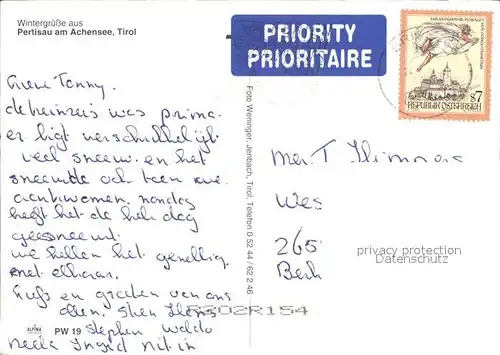 Wintergrüße aus
Pertisau am Achensee, Tirol
PRIORITY
PRIORITAIRE
S7
REPUBLIK ÖSTERREICH
Lieve Tonny.
de heinreis was prima.
er ligt verschrikkelijk
veel sneeuw. en het
sneeuwde ook toen we
aankwamen. zondag
heeft het de hele dag
gesneeuwd.
we hebben het gezellig.
met elkaar.
en groeten van ons
allen.
Stephen
Ingrid
Foto Weninger, Jenbach, Tirol, Telefon 0 52 44 / 62 2 46
265
privacy protection
Datenschutz
ALPINA
PW 19